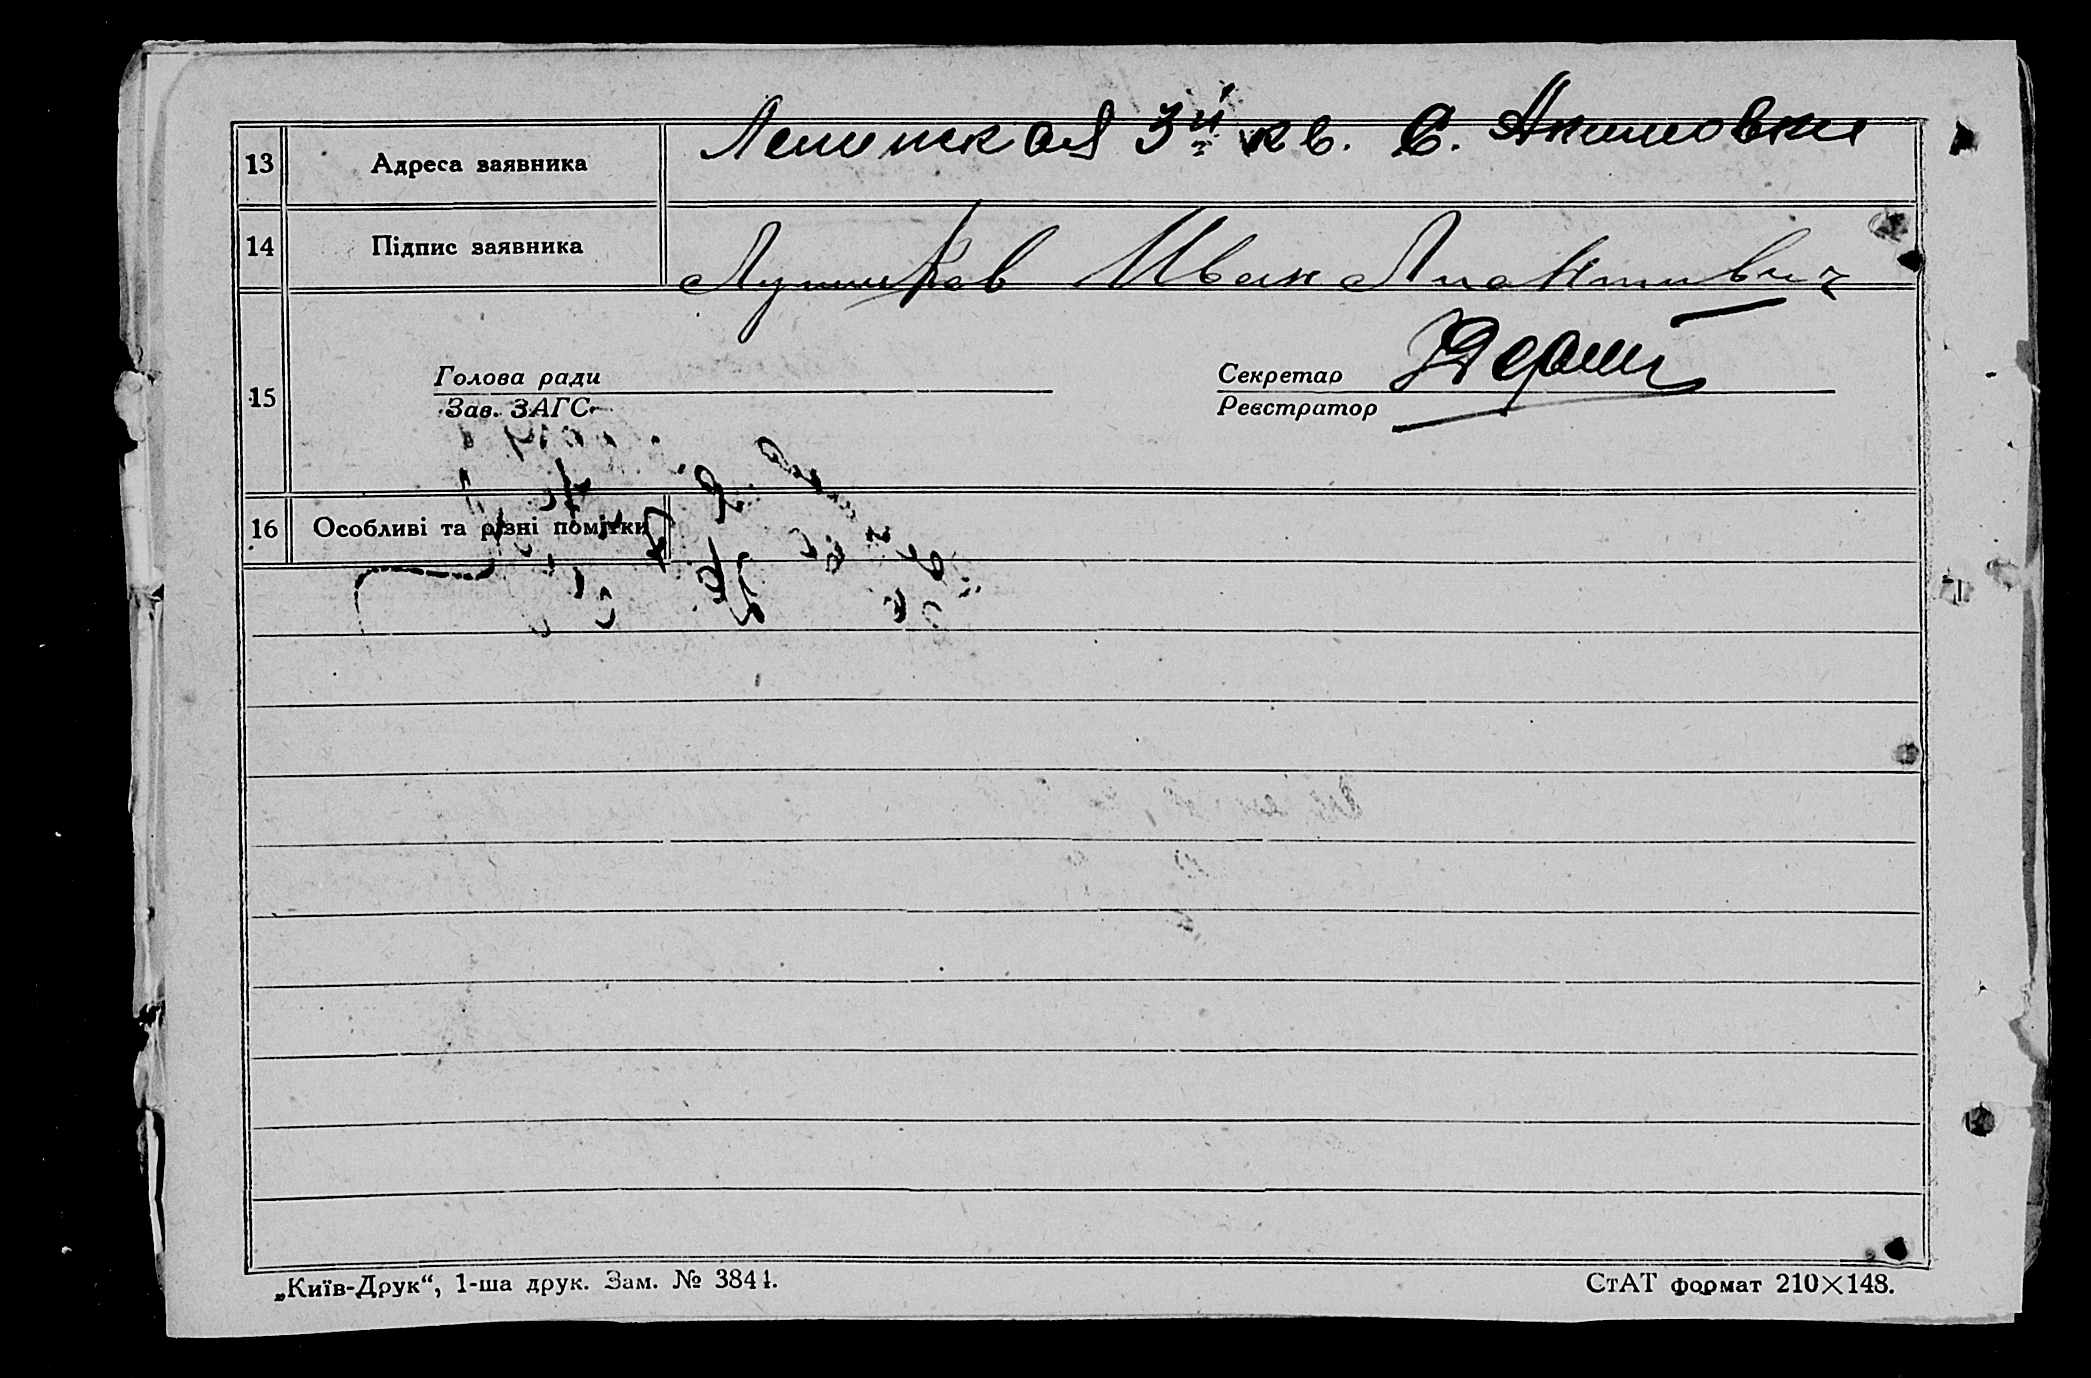 13 Адреса заявника Ленинская 3й кв. С. Акимовки
14 Підпис заявника Иван
15 Голова ради Секретар
Зав. ЗАГС Реєстратор
16 Особливі та різні помітки
„Київ-Друк“, 1-ша друк. Зам. № 3841. СтАТ формат 210×148.